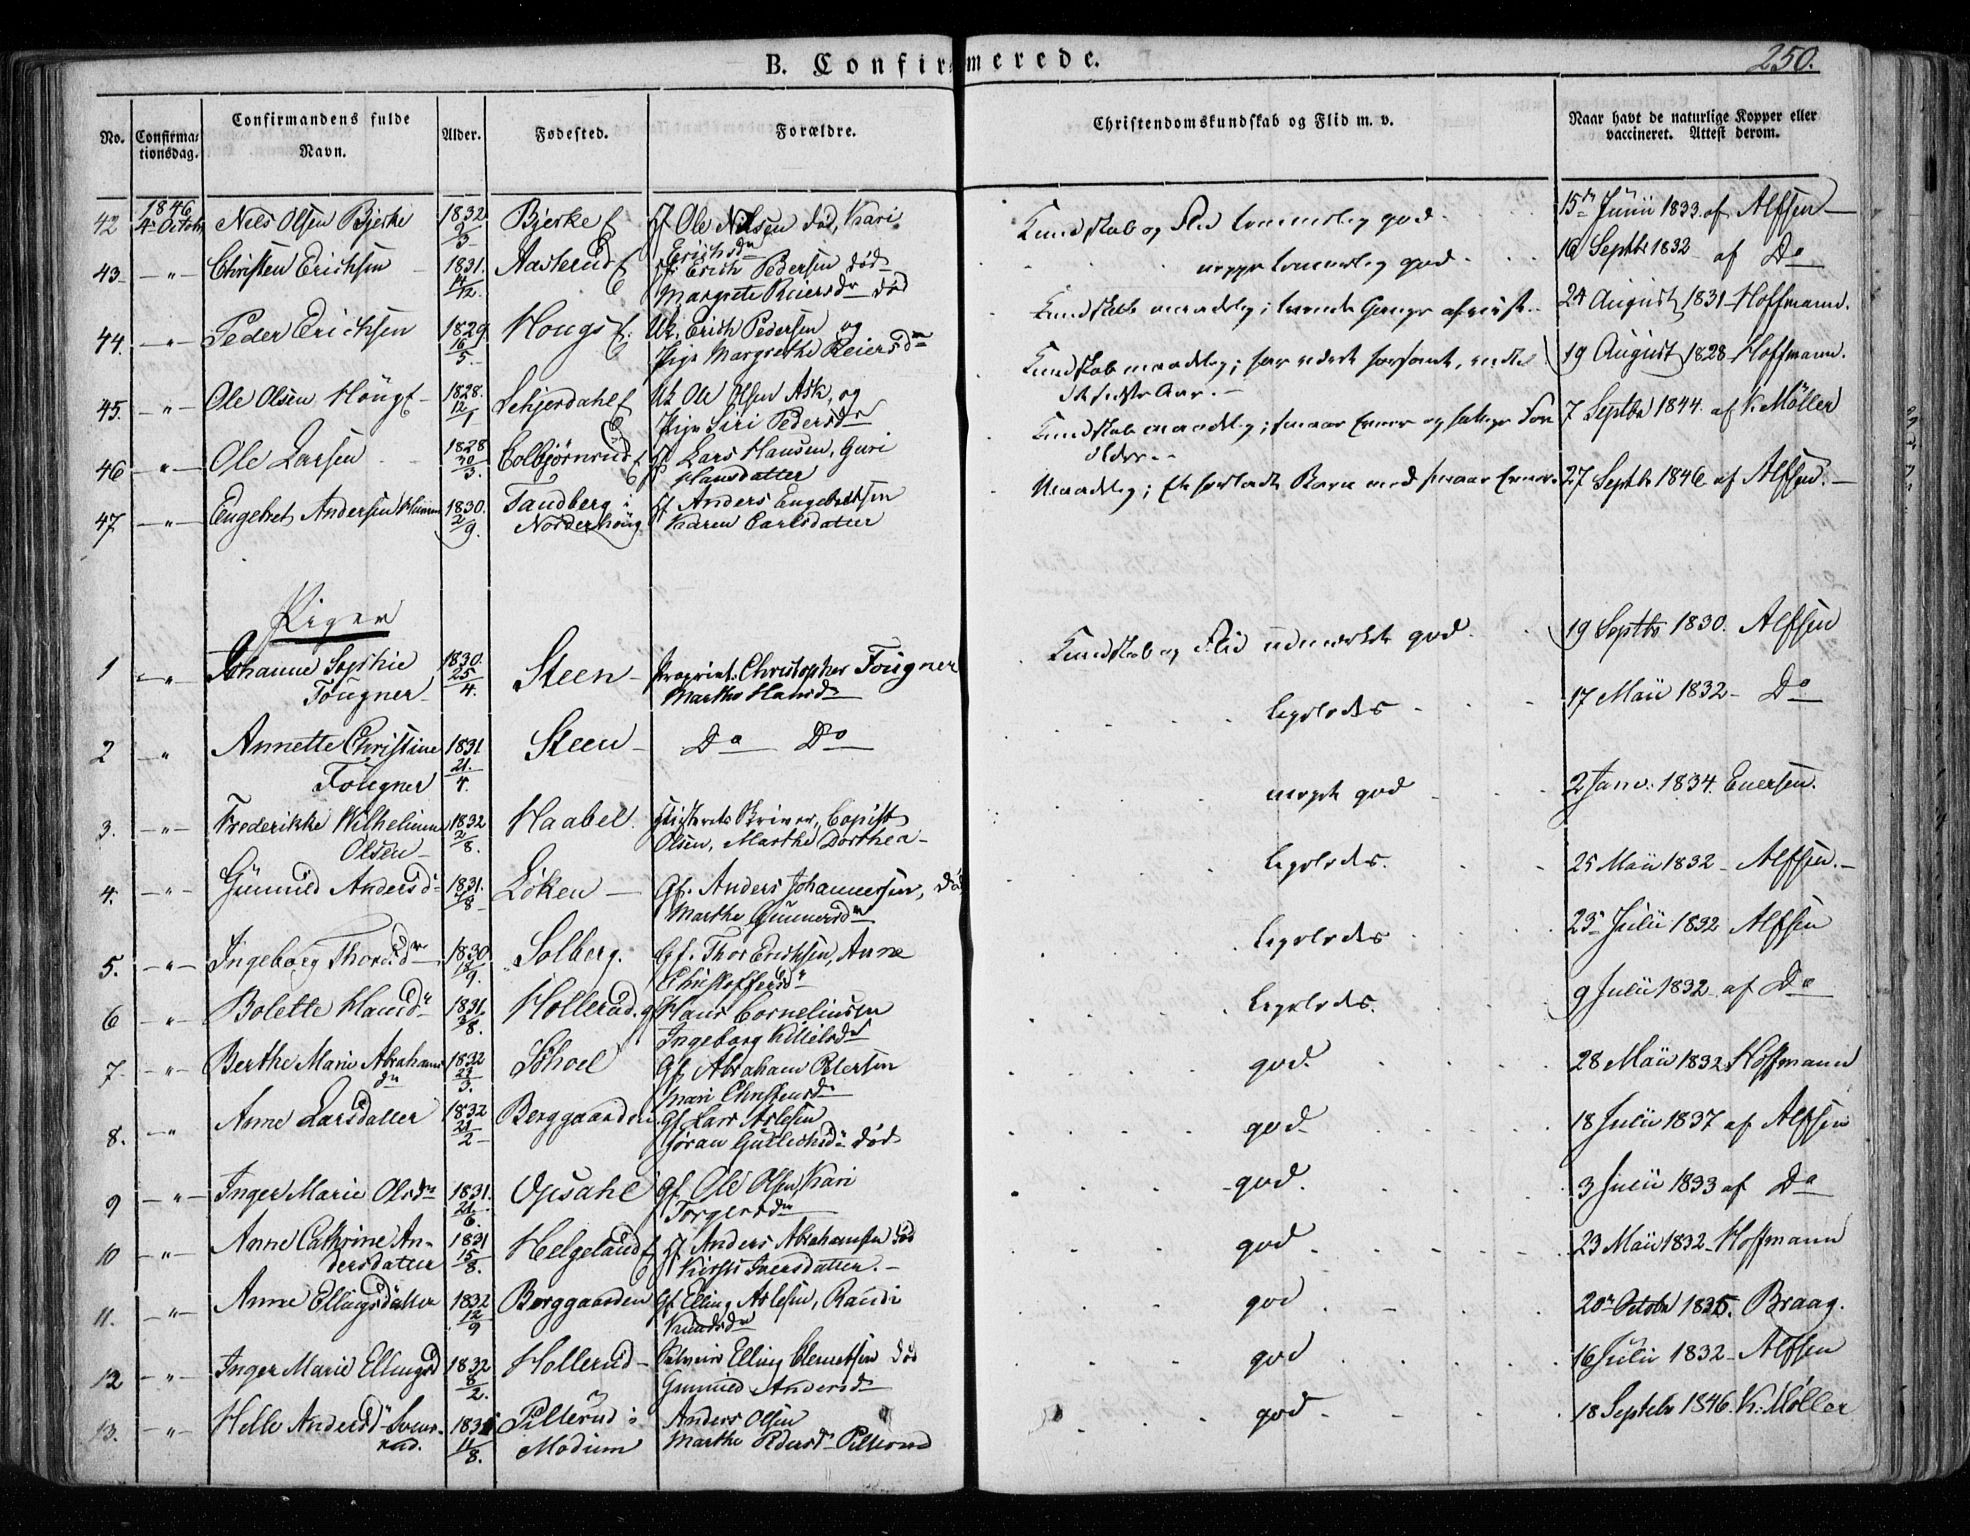 B. Confirmerede.
250.
No. Confirmationsdag. Confirmandens fulde Navn. Alder. Fødested. Forældre. Christendomskundskab og Flid m. v. Naar havt de naturlige Kopper eller vaccineret. Attest derom.
42 1846 4de Octobr Nels Olsen Bjerke 1832 2/3 Bjerke E Hf Ole Nilsen død, Kari Erichsdr Kundskab og Flid temmelig god 15de Junii 1833 af Alfsen
43 — " — Christen Erichsen 1831. 14/12. Aasterud E Hf. Erich Pedersen død Margrete Reiersdr død neppe temmelig god 16 Septbr 1832 af Do
44. — " — Peder Erichsen 1829 16/5. Hougs E. Uk. Erich Pedersen og Pige Margrethe Reiersdr Kundskab maadelig; tvende Gange afviist 24 August 1831 Hoffmann.
45. — " — Ole Olsen Houg 1828. 12/1 Lehjerdahl E Uk Ole Olsen Ask, og Pige Siri Pedersdr Kundskab maadelig; har været forsømt, indtil det sidste Aar. 19 August 1828 Hoffmann.
46 — " — Ole Larsen 1828 30/3. Colbjörnrud E Hf Lars Hansen, Guri Hansdatter Kundskab maadelig; smaa Evner og fattige Forældre 7 Septbr 1844. af K. Möller
47 — " — Engebret Andersen 1830. 2/9. Tandberg i Norderhoug Hf Anders Engebretsen Karen Carlsdatter Maadelig; Et forladt Barn med smaae Evner 27 Septbr 1846 af Alfsen.
Piger
1 — " Johanne Sophie Fougner 1830. 25/4. Steen Propriet. Christopher Fougner Marthe Hansdr Kundskab og Flid udmærket god. 19 Septbr 1830. Alfsen
2 — " Annette Christine Fougner 1831 21./4. Steen Do Do ligeledes 17 Maii 1832 Do
3. — " — Frederikke Wilhelmine Olsen 1832 2/8. Haabel. Skriver, Copist Olsen, Marthe Dorthea meget god 2 Janv: 1834. Eversen.
4. — " — Gunnild Andersdr 1831. Löken Gf. Anders Johannessen, død Marthe Gunnersdr ligeledes. 25 Maii 1832 Alfsen.
5. — " — Ingeborg Thorsdr 1830 12/9. Solberg. Gf. Thor Erichsen, Anne Christoffersdr ligeledes 23de Julii 1832 Alfsen
6 — " — Bolette Hansdr 1831. Hollerud. gf Hans Corneliussen Ingeborg Killelsdr ligeledes. 9 Julii 1832 af Do
7. — " — Berthe Marie Abrahamsdr 1832 23/3. Gf Abraham Petersen Mari Christensdr god. 28 Maii 1832 Hoffmann
8. — " Anne Larsdatter 1832 21/2 Berggaarden Gf Lars Aslesen Jöran Gullichsdr død god 18 Julii 1837 af Alfsen
9 — " — Inger Marie Olsdr 1831. 21/6. Opsahl Gf. Ole Olsen, Kari Torgersdr god. 3 Julii 1833 af Do
10 — " — Anne Cathrine Andersdatter 1831 15/8. Helgeland E Hf Anders Abrahamsen død Kirsti Iversdatter. god 23 Maii 1832 Hoffmann
11. — " — Anne Ellingsdatter 1832 12/9 Berggaarden Gf Elling Aslesen, Randi Knudsdr god 20de Octobr 1835. Braag.
12 — " — Inger Marie Ellingsd 1832 8/2. Hollerud Elling Clemetsen død Gunnild Andersdr god 16 Julii 1832 Alfsen
13. — " — Helle Andersdr Svensrud. 1831 11/8. Pillerud i Modum Anders Olsen Marthe Pedersdr Pillerud god. 18 Septebr 1846. K. Møller